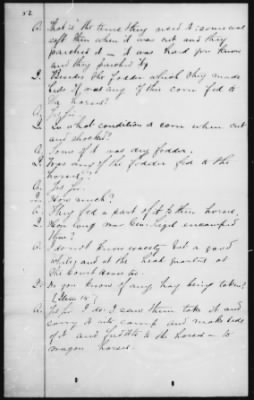 52
A. That is the time they used it some was
soft then when it was cut and they
parched it - it was hard you know
and they parched it
Q. Besides the fodder which they made
use of was any of this corn fed to
the horses?
A. Yes Sir.
Q. In what condition is corn when cut
and shocked?
A. Some of it was dry fodder.
Q. Was any of the fodder fed to the
horses?
A. Yes Sir.
Q. How much?
A. They fed a part of it to their horses.
Q. How long was Gen. Sigel encamped
there?
A. I do not know exactly but a good
while, and at the head quarters at
the Court House too.
Q. Do you know of any hay being taken?
(Item 14)
A. Yes Sir I do. I saw them take it and
carry it into camp and make beds
of it and fed it to the horses to
wagon horses.